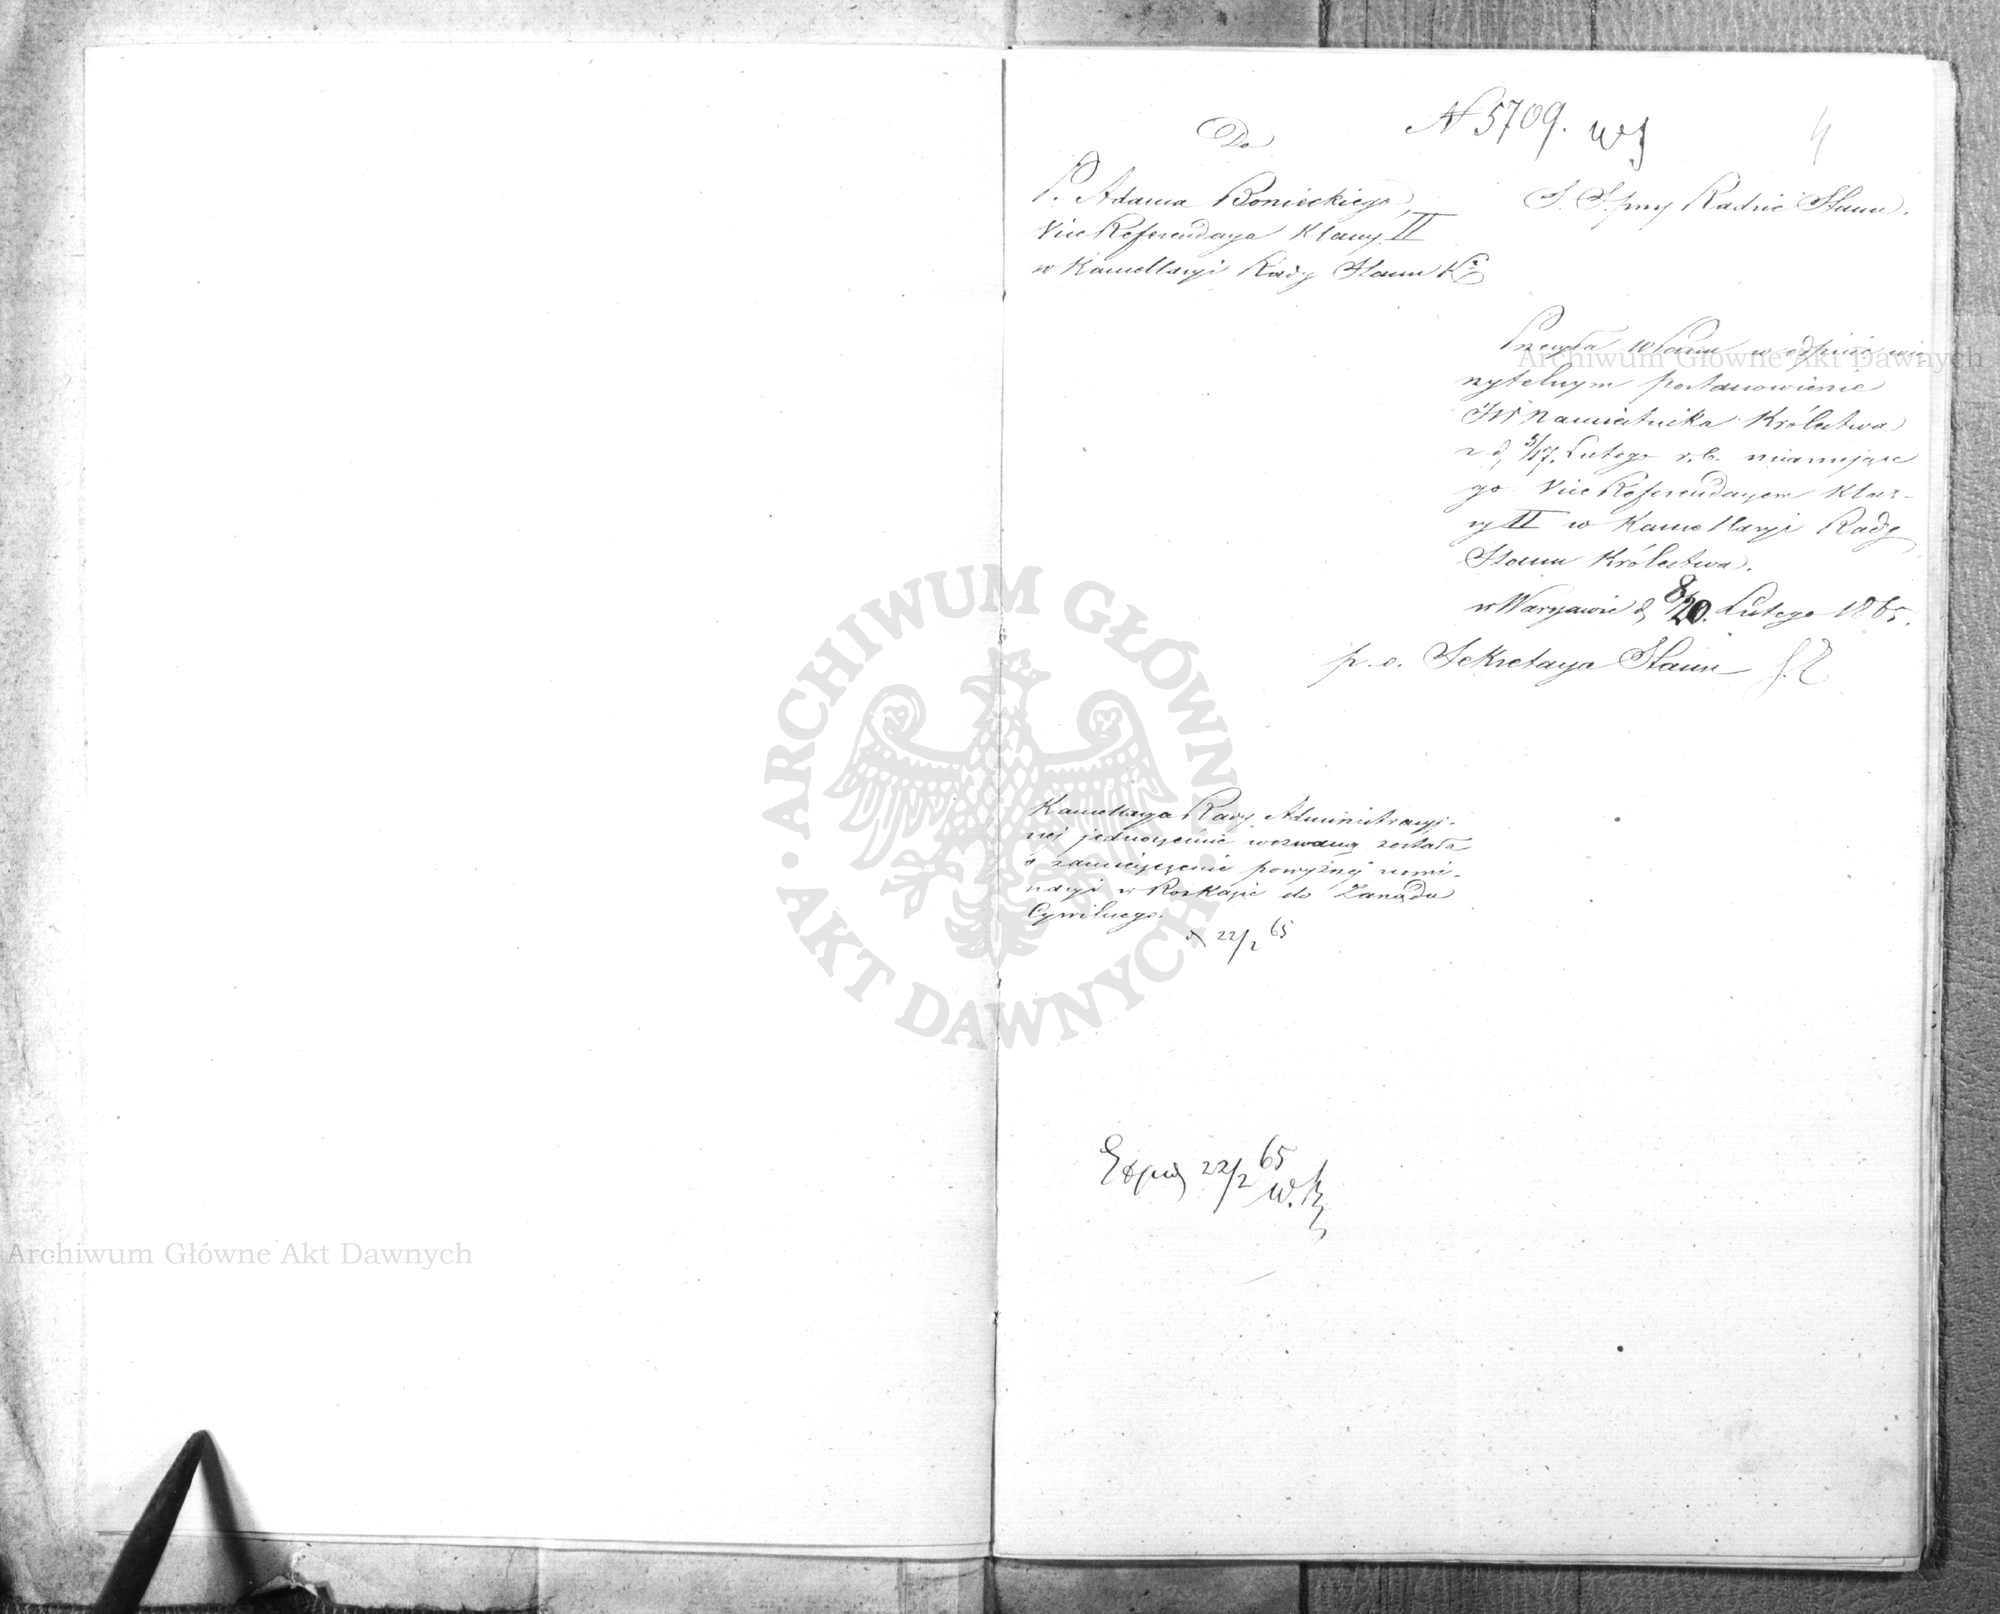 N 5709.
4
Do
P. Adama Bonieckiego,
Vice Referendarza Klassy II
w Kancellaryi Rady Stanu Kr
S. S. przy Radzie Stanu.
Przesyła WPanu w odpisie wie-
rzytelnym postanowienie
JW Namiestnika Królestwa
z d. 5/17. Lutego r. b. mianujące
go Vice Referendarzem Klas-
sy II w Kancellaryi Rady
Stanu Królestwa.
w Warszawie d. 8/20. Lutego 1865.
p. o. Sekretarza Stanu
Kancellarya Rady Administracyj-
nej jednocześnie wezwaną została
o zamieszczenie powyższej nomi-
nacyi w Rozkazie do Zarządu
Cywilnego.
22/2 65
22/2 65
Archiwum Główne Akt Dawnych
ARCHIWUM GŁÓWNE · AKT DAWNYCH ·
Archiwum Główne Akt Dawnych